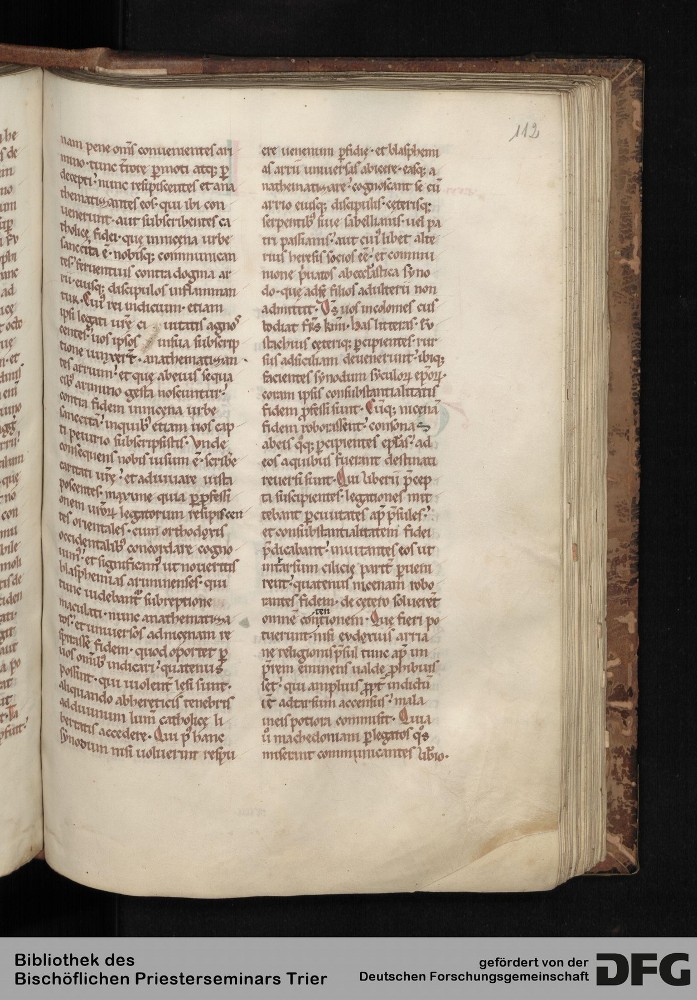 112
nam pene om̄s conuenientes ari
mino · tunc t̄rore p̱moti atq; p̱
decepti · nunc resipiscentes et ana
thematizantes eos · qui ibi con
uenerunt · aut subscribentes ca
tholicę fidei · que in nicena urbe
sanccita ē · nobisq; communican
tes · feruentius contra dogma ar
rii · eiusq; discipulos inflamman
tur · Cuiꝰ rei indicium · etiam
ipsi legati urē ci uitatis agnoſ
centes · uos ipsos iusua subscrip
tione iunxert̄ · anathematizan
tes arrium · et que abeius sequa
cibꝰ arimino gesta noscuntur ·
contra fidem in nicena urbe
sanccita · in quibꝰ etiam uos cap
ti periurio subscripsistis · Vnde
consequens nobis uisum ē · scribe
caritati urę · et adiuuare iusta
poscentes · maxime quia p̱ p̱fessi
onem urōꝝ legatorum resipiscen
tes orientales · cum orthodoxis
occidentalibꝰ concordare cogno
uimꝰ · et significamꝰ ut noueritis
blasphemias ariminenses · qui
tunc uidebant̄ subreptione
maculati · nunc anathematiza
tos · et uniuersos ad nicenam re
spirasse fidem · quod oportet p̱
uos omībꝰ indicari · quatenus
possint · qui uiolent̄ lesi sunt ·
aliquando abhereticis tenebris
ad diuinum lum̄ catholicę li
bertatis accedere · Qui p̄ hanc
synodum nisi uoluerint respu
ere uenenum p̱fidię · et blasphemi
as arrii uniuersas abicere · easq; a
nathematizare · cognoscant se cū
arrio eiusq; discipulis · ceterisq;
serpentibꝰ siue sabellianis · uel pa
tri passianis · aut cuiꝰ libet alte
rius heresis socios eē · et commu
nione p̱uatos ab ecclastica syno
do · que adſę filios adulterii non
admittit · Dſ uos incolomes cus
todiat frēs km̄i · has litteras · Eu
stachius ceteriq; p̱cipientes · rur
sus ad siciliam deuenerunt · ibiq;
facientes synodum syculoꝝ ep̄oꝝ ·
coram ipsis consubstantialitatis
fidem p̱fessi sunt · Cūq; nicenā
fidem roborassent · consona
abeis q̄q; p̱cipientes ep̄las · ad
eos aquibus fuerant destinati
reuersi sunt · Qui liberii p̄cep
ta suscipientes · legationes mit
tebant p̱ciuitates ap̄ p̄sules ·
et consubstantialitatem fidei
p̄dicabant · inuitantes eos ut
in tarsum cilicię parit̄ p̱ueni
rent · quatenus nicenam robo
rantes fidem · de cetero soluerēt
omnē contionem · Quę fieri po
ten
tuerunt · nisi eudoxius arria
ne religionis p̄sul tunc ap̄ im
p̱rem eminens ualde p̱hibuis
set · qui amplius p̱pt̄ indictū
it̄ ad tarsum accensus · mala
meis potiora commisit · Quia
ū machedoniam p̱ legatos q̄s
miserunt communicantes lib̄io ·
Bibliothek des
Bischöflichen Priesterseminars Trier
gefördert von der
Deutschen Forschungsgemeinschaft
DFG